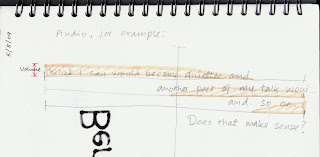 5/8/09
Audio, for example:
Volume
What I saw would become quieter and
another part of my talk woul
and so on.
Does that make sense?